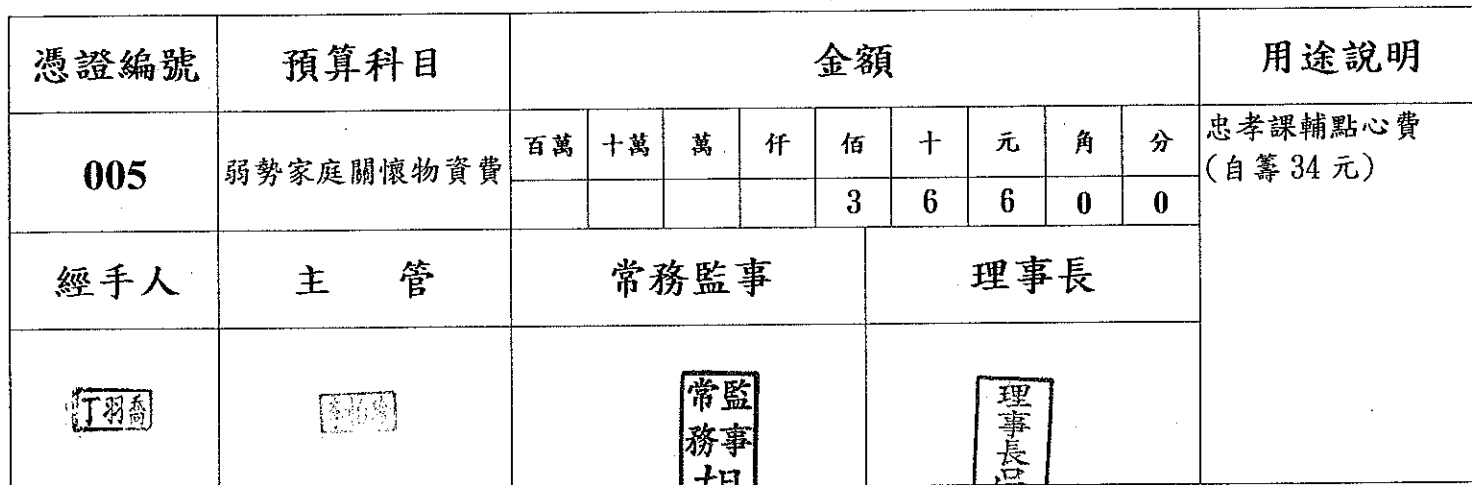 憑證編號 預算科目 金額 用途說明
005 弱勢家庭關懷物資費 百萬 十萬 萬 仟 佰 十 元 角 分 忠孝課輔點心費
(自籌 34 元)
3 6 6 0 0
經手人 主 管 常務監事 理事長
丁羽喬
常務
監事
理事長